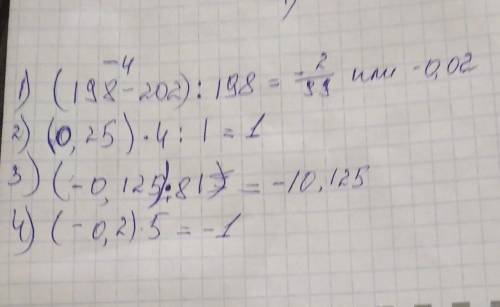 -4
1) (198-202):198 = -2/99 или -0,02
2) (0,25)·4:1=1
3) (-0,125):81) = -10,125
4) (-0,2)·5=-1